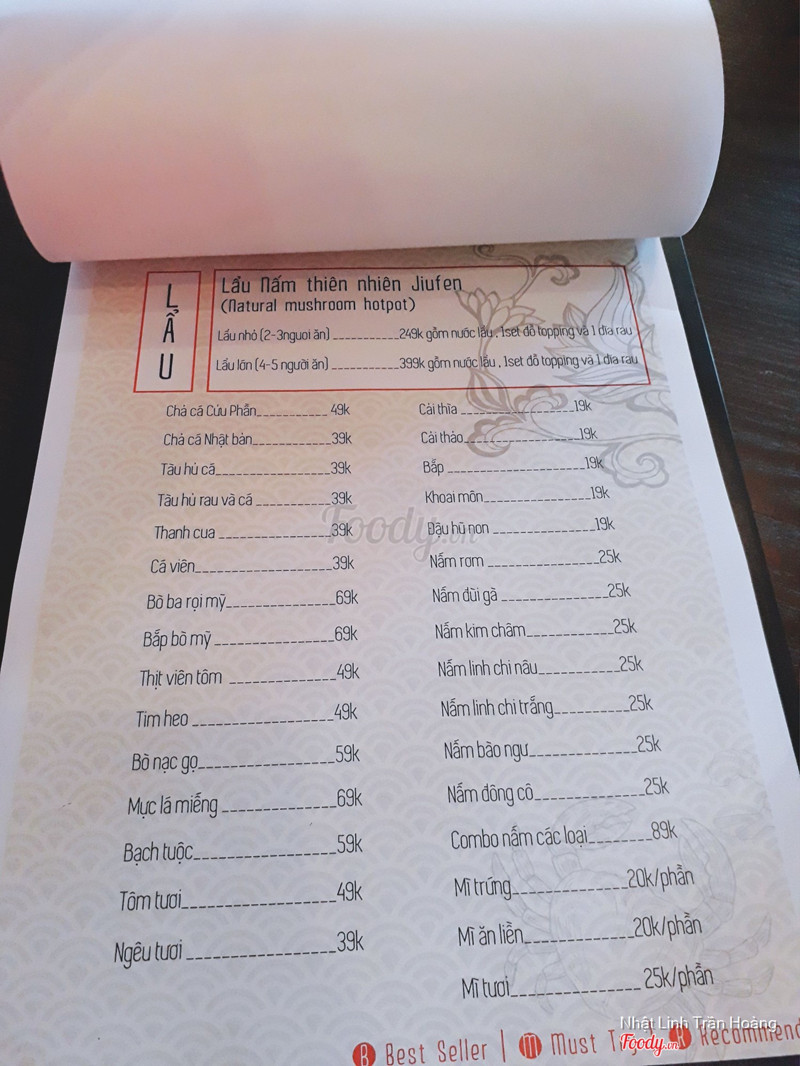 LẨU
Lẩu Nấm thiên nhiên Jiufen
(Natural mushroom hotpot)
Lẩu nhỏ (2-3nguoi ăn) ___________249k gồm nước lẩu , 1set đồ topping và 1 dĩa rau
Lẩu lớn (4-5 người ăn) ___________399k gồm nước lẩu , 1set đồ topping và 1 dĩa rau
Chả cá Cửu Phần___________49k
Chả cá Nhật bản___________39k
Tàu hủ cá___________39k
Tàu hủ rau và cá___________39k
Thanh cua___________39k
Cá viên___________39k
Bò ba rọi mỹ___________69k
Bắp bò mỹ___________69k
Thịt viên tôm___________49k
Tim heo___________49k
Bò nạc gọ___________59k
Mực lá miếng___________69k
Bạch tuộc___________59k
Tôm tươi___________49k
Ngêu tươi___________39k
Cải thìa___________19k
Cải thảo___________19k
Bắp___________19k
Khoai môn___________19k
Đậu hũ non___________19k
Nấm rơm___________25k
Nấm đùi gà___________25k
Nấm kim châm___________25k
Nấm linh chi nâu___________25k
Nấm linh chi trắng___________25k
Nấm bào ngư___________25k
Nấm đông cô___________25k
Combo nấm các loại________89k
Mì trứng___________20k/phần
Mì ăn liền___________20k/phần
Mì tươi___________25k/phần
Foody.vn
Nhật Linh Trần Hoàng
Foody.vn
B Best Seller | M Must Try | R Recommend